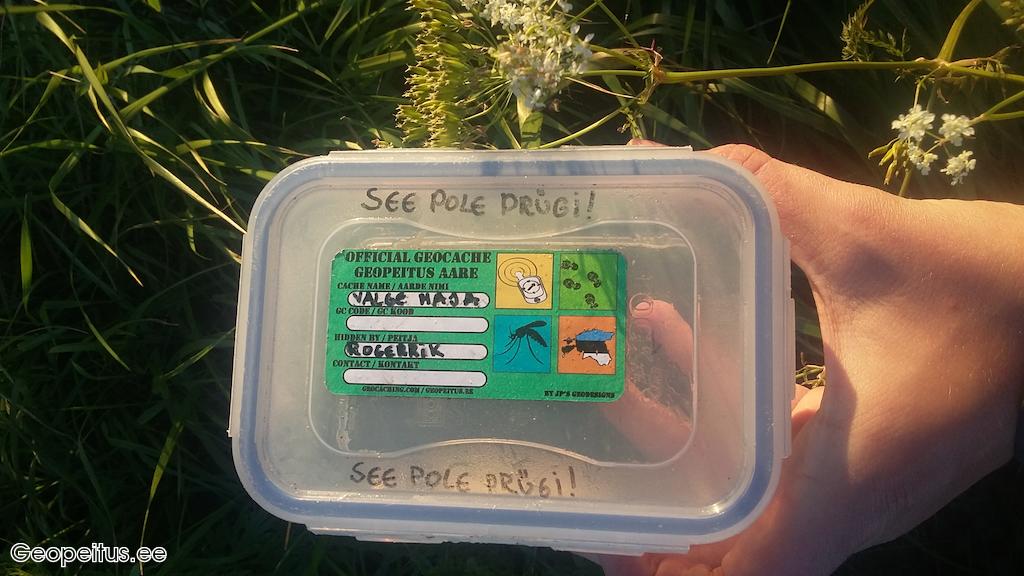 SEE POLE PRÜGI!
OFFICIAL GEOCACHE
GEOPEITUS AARE
CACHE NAME / AARDE NIMI
VALGE MAJA
GC CODE / GC KOOD
HIDDEN BY / PEITJA
ROGERRIK
CONTACT / KONTAKT
GEOCACHING.COM / GEOPEITUS.EE
BY JP'S GEODESIGNS
SEE POLE PRÜGI!
Geopeitus.ee